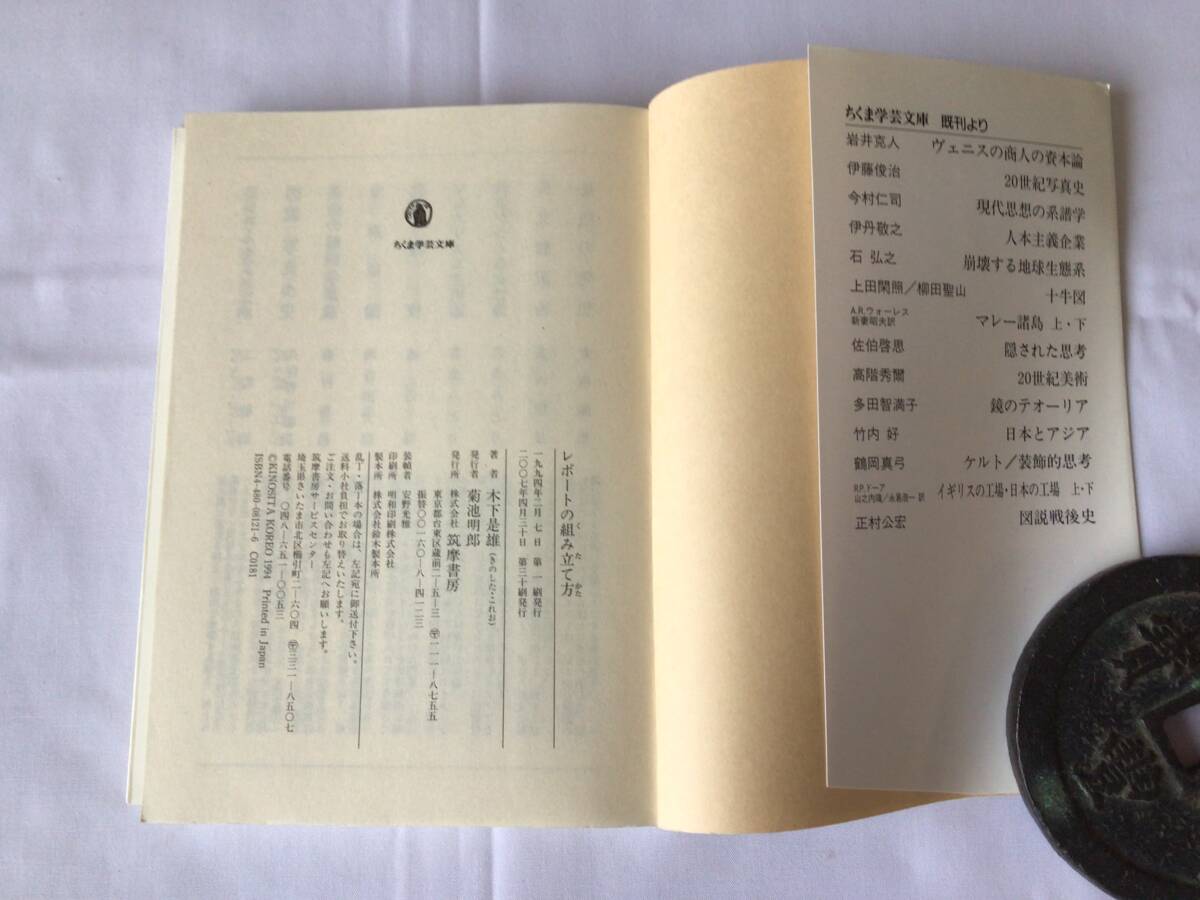 ちくま学芸文庫
レポートの組み立て方
一九九四年二月七日 第一刷発行
二〇〇七年四月三十日 第三十刷発行
著者 木下是雄(きのした・これお)
発行者 菊池明郎
発行所 株式会社 筑摩書房
東京都台東区蔵前二―五―三 〒一一一―八七五五
振替〇〇一六〇―八―四一二三
装幀者 安野光雅
印刷所 明和印刷株式会社
製本所 株式会社鈴木製本所
乱丁・落丁本の場合は、左記宛に御送付下さい。
送料小社負担でお取り替えいたします。
ご注文・お問い合わせも左記へお願いします。
筑摩書房サービスセンター
埼玉県さいたま市北区櫛引町二―六〇四 〒三三一―八五〇七
電話番号 〇四八―六五一―〇〇五三
©KINOSITA KOREO 1994 Printed in Japan
ISBN4-480-08121-6 C0181
ちくま学芸文庫 既刊より
岩井克人 ヴェニスの商人の資本論
伊藤俊治 20世紀写真史
今村仁司 現代思想の系譜学
伊丹敬之 人本主義企業
石 弘之 崩壊する地球生態系
上田閑照/柳田聖山 十牛図
A.R.ウォーレス
新妻昭夫訳 マレー諸島 上・下
佐伯啓思 隠された思考
高階秀爾 20世紀美術
多田智満子 鏡のテオーリア
竹内 好 日本とアジア
鶴岡真弓 ケルト/装飾的思考
R.P.ドーア
山之内靖/永易浩一訳 イギリスの工場・日本の工場 上・下
正村公宏 図説戦後史